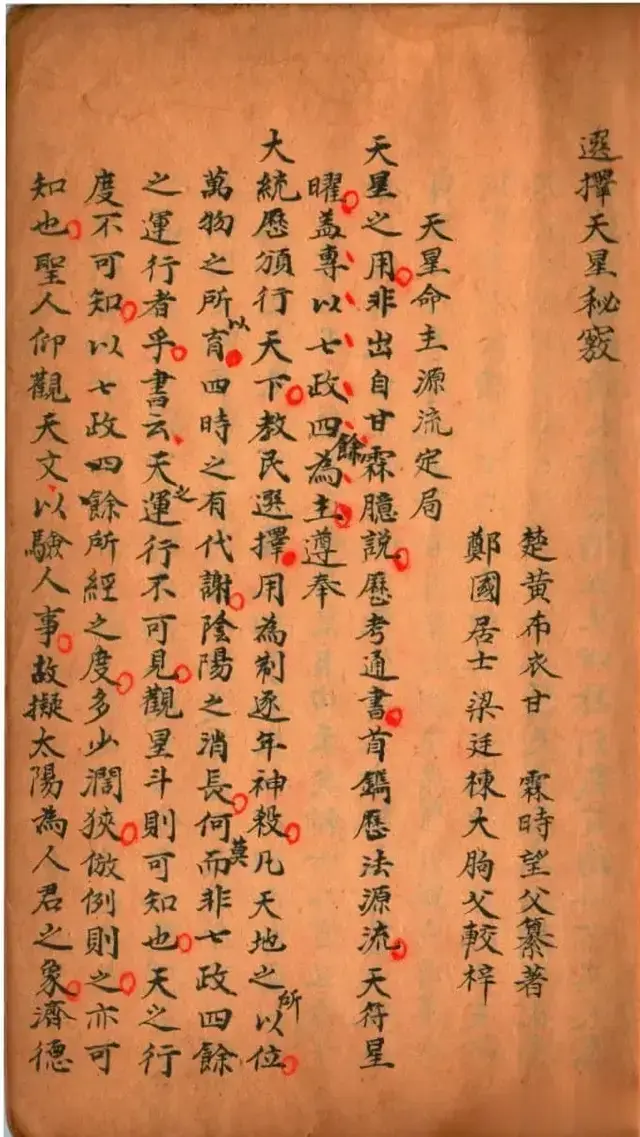 選擇天星秘竅
楚黃布衣甘　霖時望父纂著
鄭國居士梁廷棟大胸父較梓
天星命主源流定局
天星之用非出自甘霖臆說歷考通書首鐫曆法源流天符星
曜蓋專以七政四餘為主遵奉
大統曆頒行天下教民選擇用為制逐年神殺凡天地之所以位
萬物之所以育四時之有代謝陰陽之消長何莫而非七政四餘
之運行者乎書云天之運行不可見觀星斗則可知也天之行
度不可知以七政四餘所經之度多少濶狹倣例則之亦可
知也聖人仰觀天文以驗人事故擬太陽為人君之象濟德